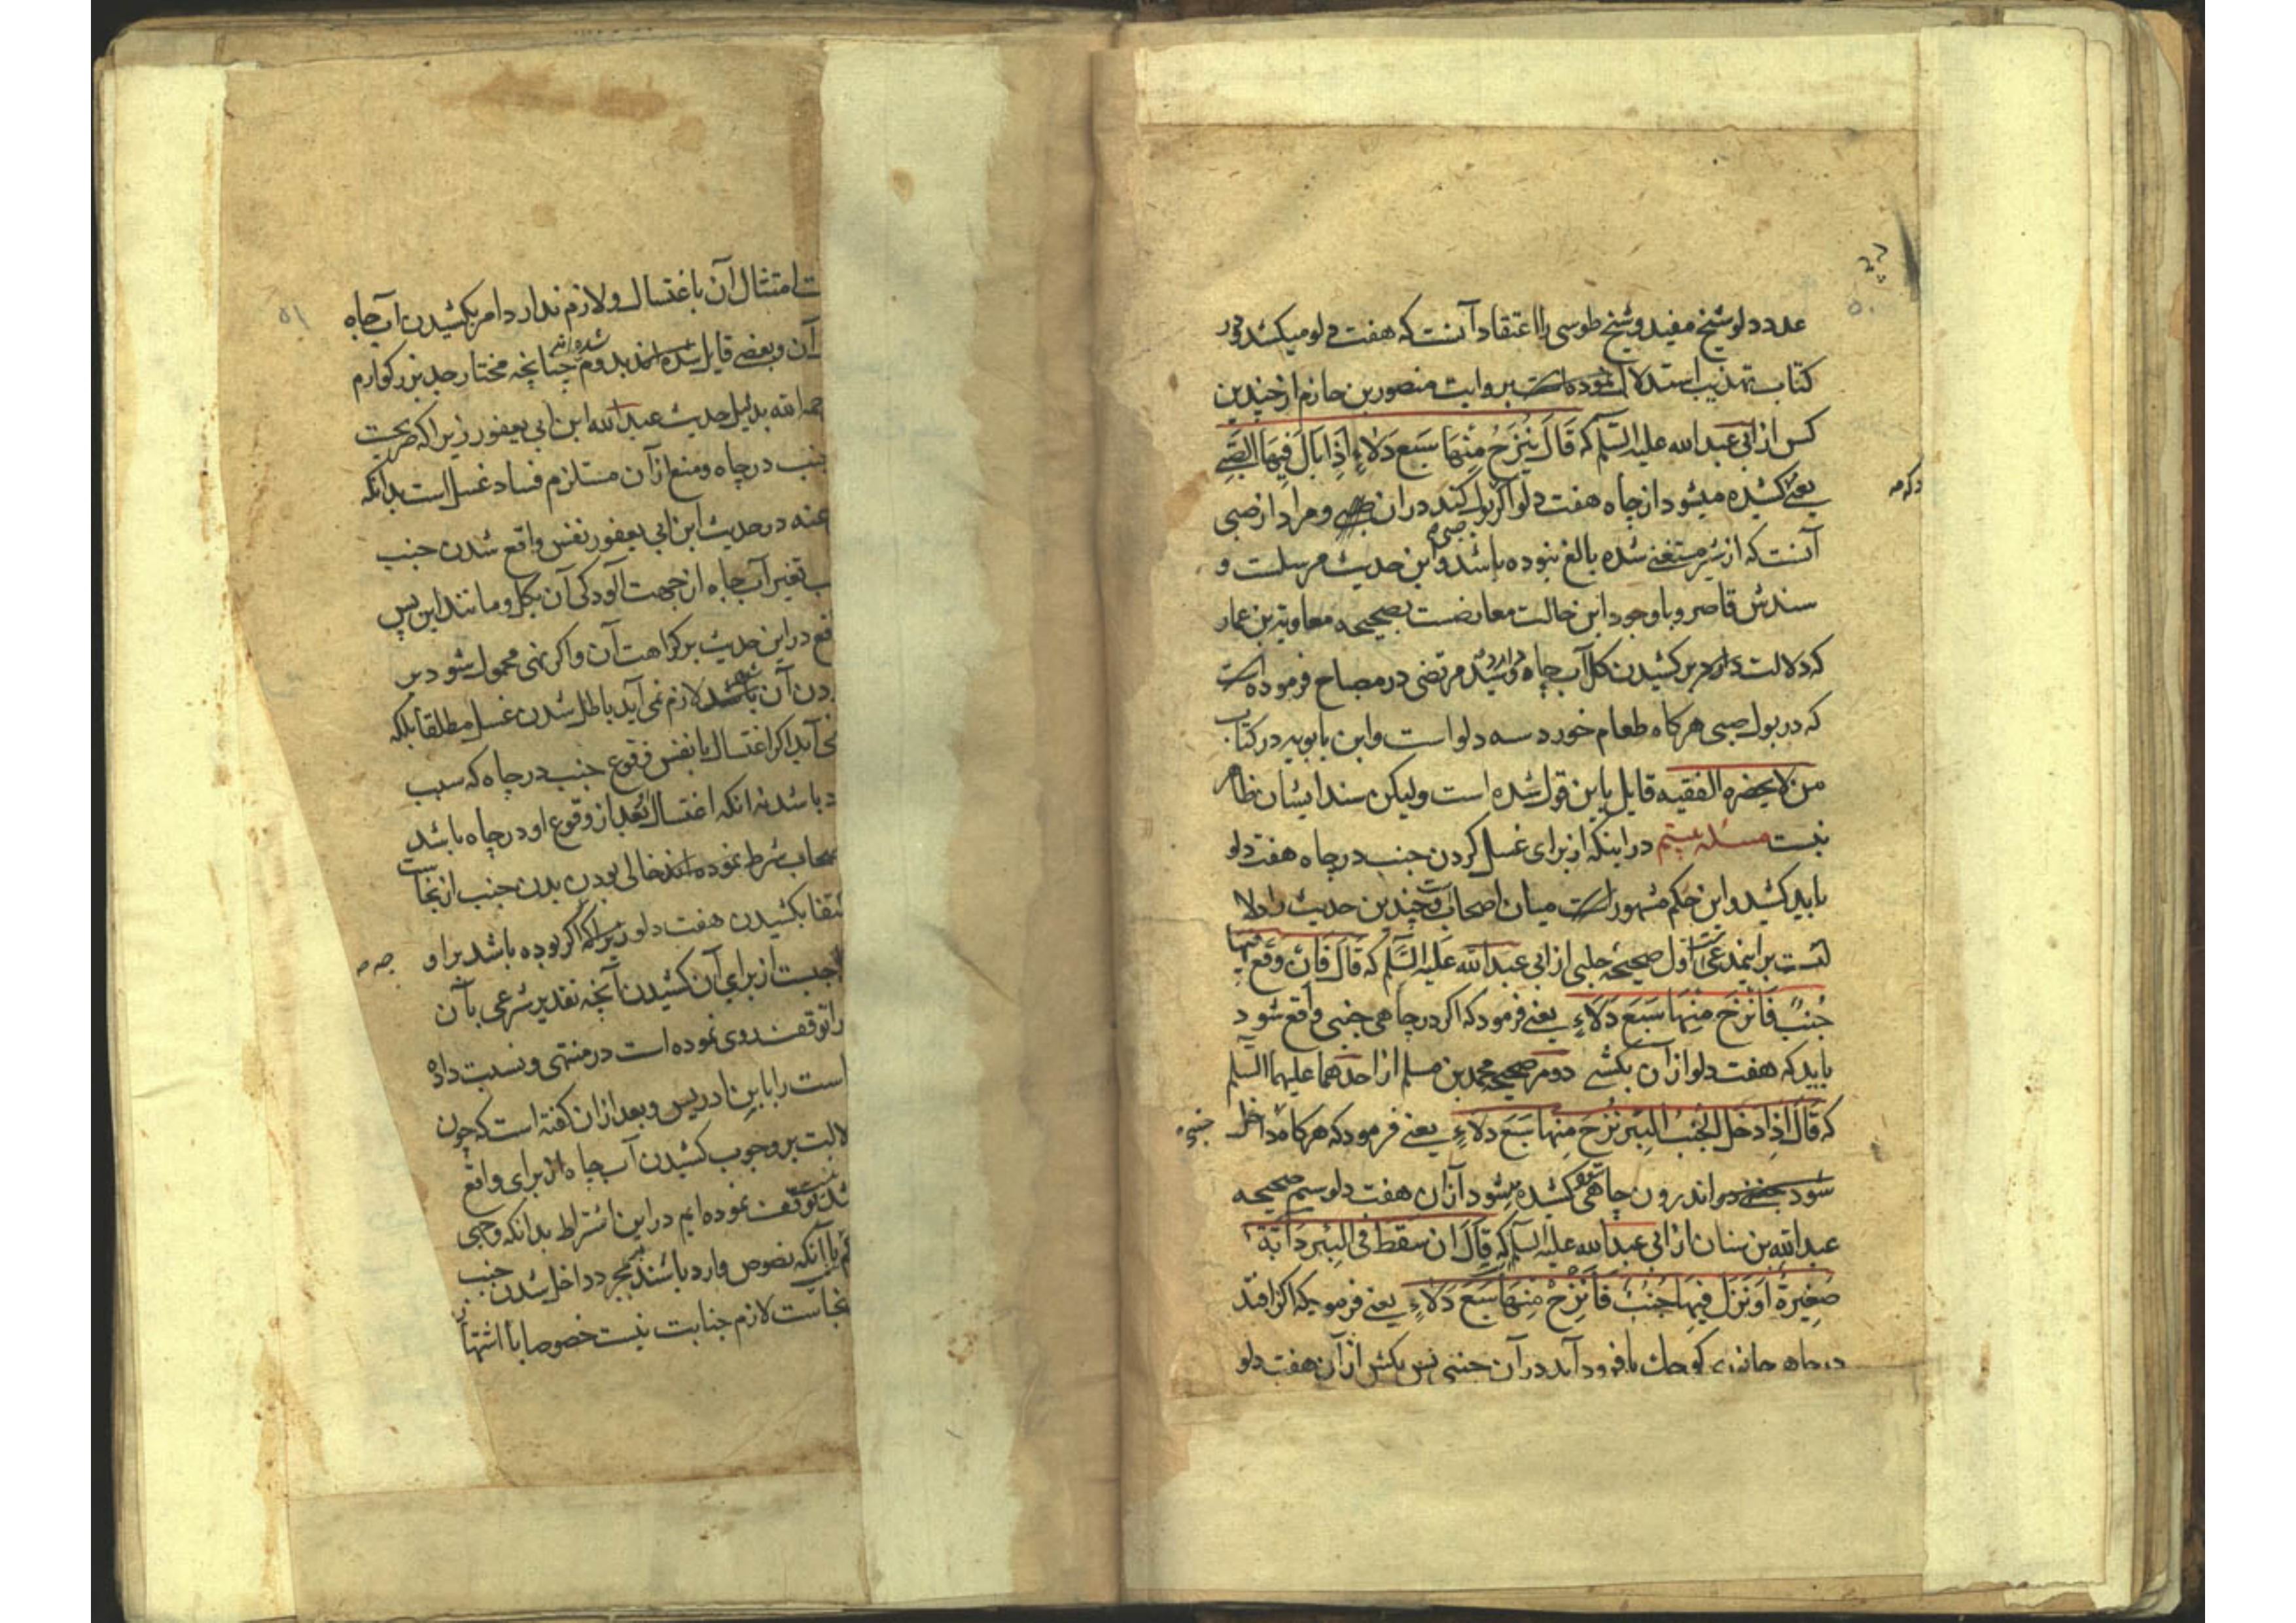 عدد دلو شیخ مفید و شیخ طوسی را اعتقاد آنست که هفت دلو میکشد و در
کتاب تهذیب استدلال نموده است بروایت منصور بن حازم از چندین
کس از ابی عبد الله علیه السلم که قَالَ یُنْزَحُ مِنْهَا سَبع دَلَاءٍ اِذَا بَالَ فِیهَا الصَّبِی
یعنے کشیده میشود از چاه هفت دلو اگر بول کند در آن صبی و مراد از صبی
آنست که از شیر مستغنے شده بالغ نبوده باشد و این حدیث مرسلست و
سندش قاصر و با وجود این حالت معارضست بصحیحه معاویة بن عمار
که دلالت دارد بر کشیدن کل آب چاه و سید مرتضی در مصباح فرموده است
که در بول صبی هر کاه طعام خورد سه دلو است و ابن بابویه در کتاب
من لا یحضره الفقیه قایل باین قول شده است ولیکن سند ایشان ظاهر
نیست مسئله بیستم در اینکه از برای غسل کردن جنب در چاه هفت دلو
باید کشید و این حکم مشهور است میان اصحاب و چندین حدیث را دلا
لتست بر این مدعی اول صحیحه حلبی از ابی عبد الله عَلیه السَّلم که قَالَ فَاِنْ وَقَعَ فیها
جُنُبٌ فَانْزَحْ مِنْهَا سَبَعَ دَلَاءٍ یعنے فرمود که اگر در چاهی جنبی واقع شود
باید که هفت دلو از آن بکشے دوم صحیحه محمد بن مسلم از احدهما علیهما السلم
که قَالَ اِذَا دَخَلَ الْجُنُبُ الْبِئْرَ نُزِحَ مِنها سَبَعَ دَلَاءٍ یعنے فرمود که هر کاه داخل
شود جنبے در اندرون چاهی کشیده میشود از آن هفت دلو سیم صحیحه
عبد الله بن سنان از ابی عبد الله علیه السلم که قَالَ اِنْ سَقَطَ فِی الْبِئرِ دَابَّة
صَغِیرَةٌ اَوْ نَزَلَ فِیهَا جُنُبٌ فَانْزَحْ مِنْهَا سَبَعَ دَلَاءٍ یعنے فرمود که اگر افتد
در چاه جانوری کوچک یا فرود آید در آن جنبی پس بکش از آن هفت دلو
۵۰
۵۱
ت امتثال آن باغتسال و لازم ندارد امر بکشیدن آب چاه
آن و بعضے قایل شده‌اند بدوم چنانچه مختار جد بزرکوارم
حمه الله بدلیل حدیث عبد الله ابن ابی یعفور زیرا که صریحت
جنب در چاه و منع از آن مستلزم فساد غسل است بدانکه
عنه در حدیث ابن ابی یعفور نفس واقع شدن جنب
ب تغیر آب چاه از جهت آلودکی آن بکل و مانند این پس
قع در این حدیث بر کراهت آن و اگر نهی محمول شود بر
دن آن لازم نمی آید باطل شدن غسل مطلقا بلکه
می آید اگر اغتسال با نفس وقوع جنب در چاه که سبب
د باشد نه آنکه اغتسال بعد از وقوع او در چاه باشد
صحاب شرط نموده‌اند خالی بودن بدن جنب از نجاست
کتفا بکشیدن هفت دلو زیرا که اگر بوده باشد بر او
اجبست از برای آن کشیدن آنچه تقدیر شرعی بآن
را توقف وی نموده است در منتهی و نسبت داده
است را بابن ادریس و بعد از آن گفته است که چون
لالت بر وجوب کشیدن آب چاه از برای واقع
توقف نموده ایم در این اشتراط بدانکه وجهی
با آنکه نصوص وارد باشند بمجرد داخل شدن جنب
نجاست لازم جنابت نیست خصوصا با اشتها